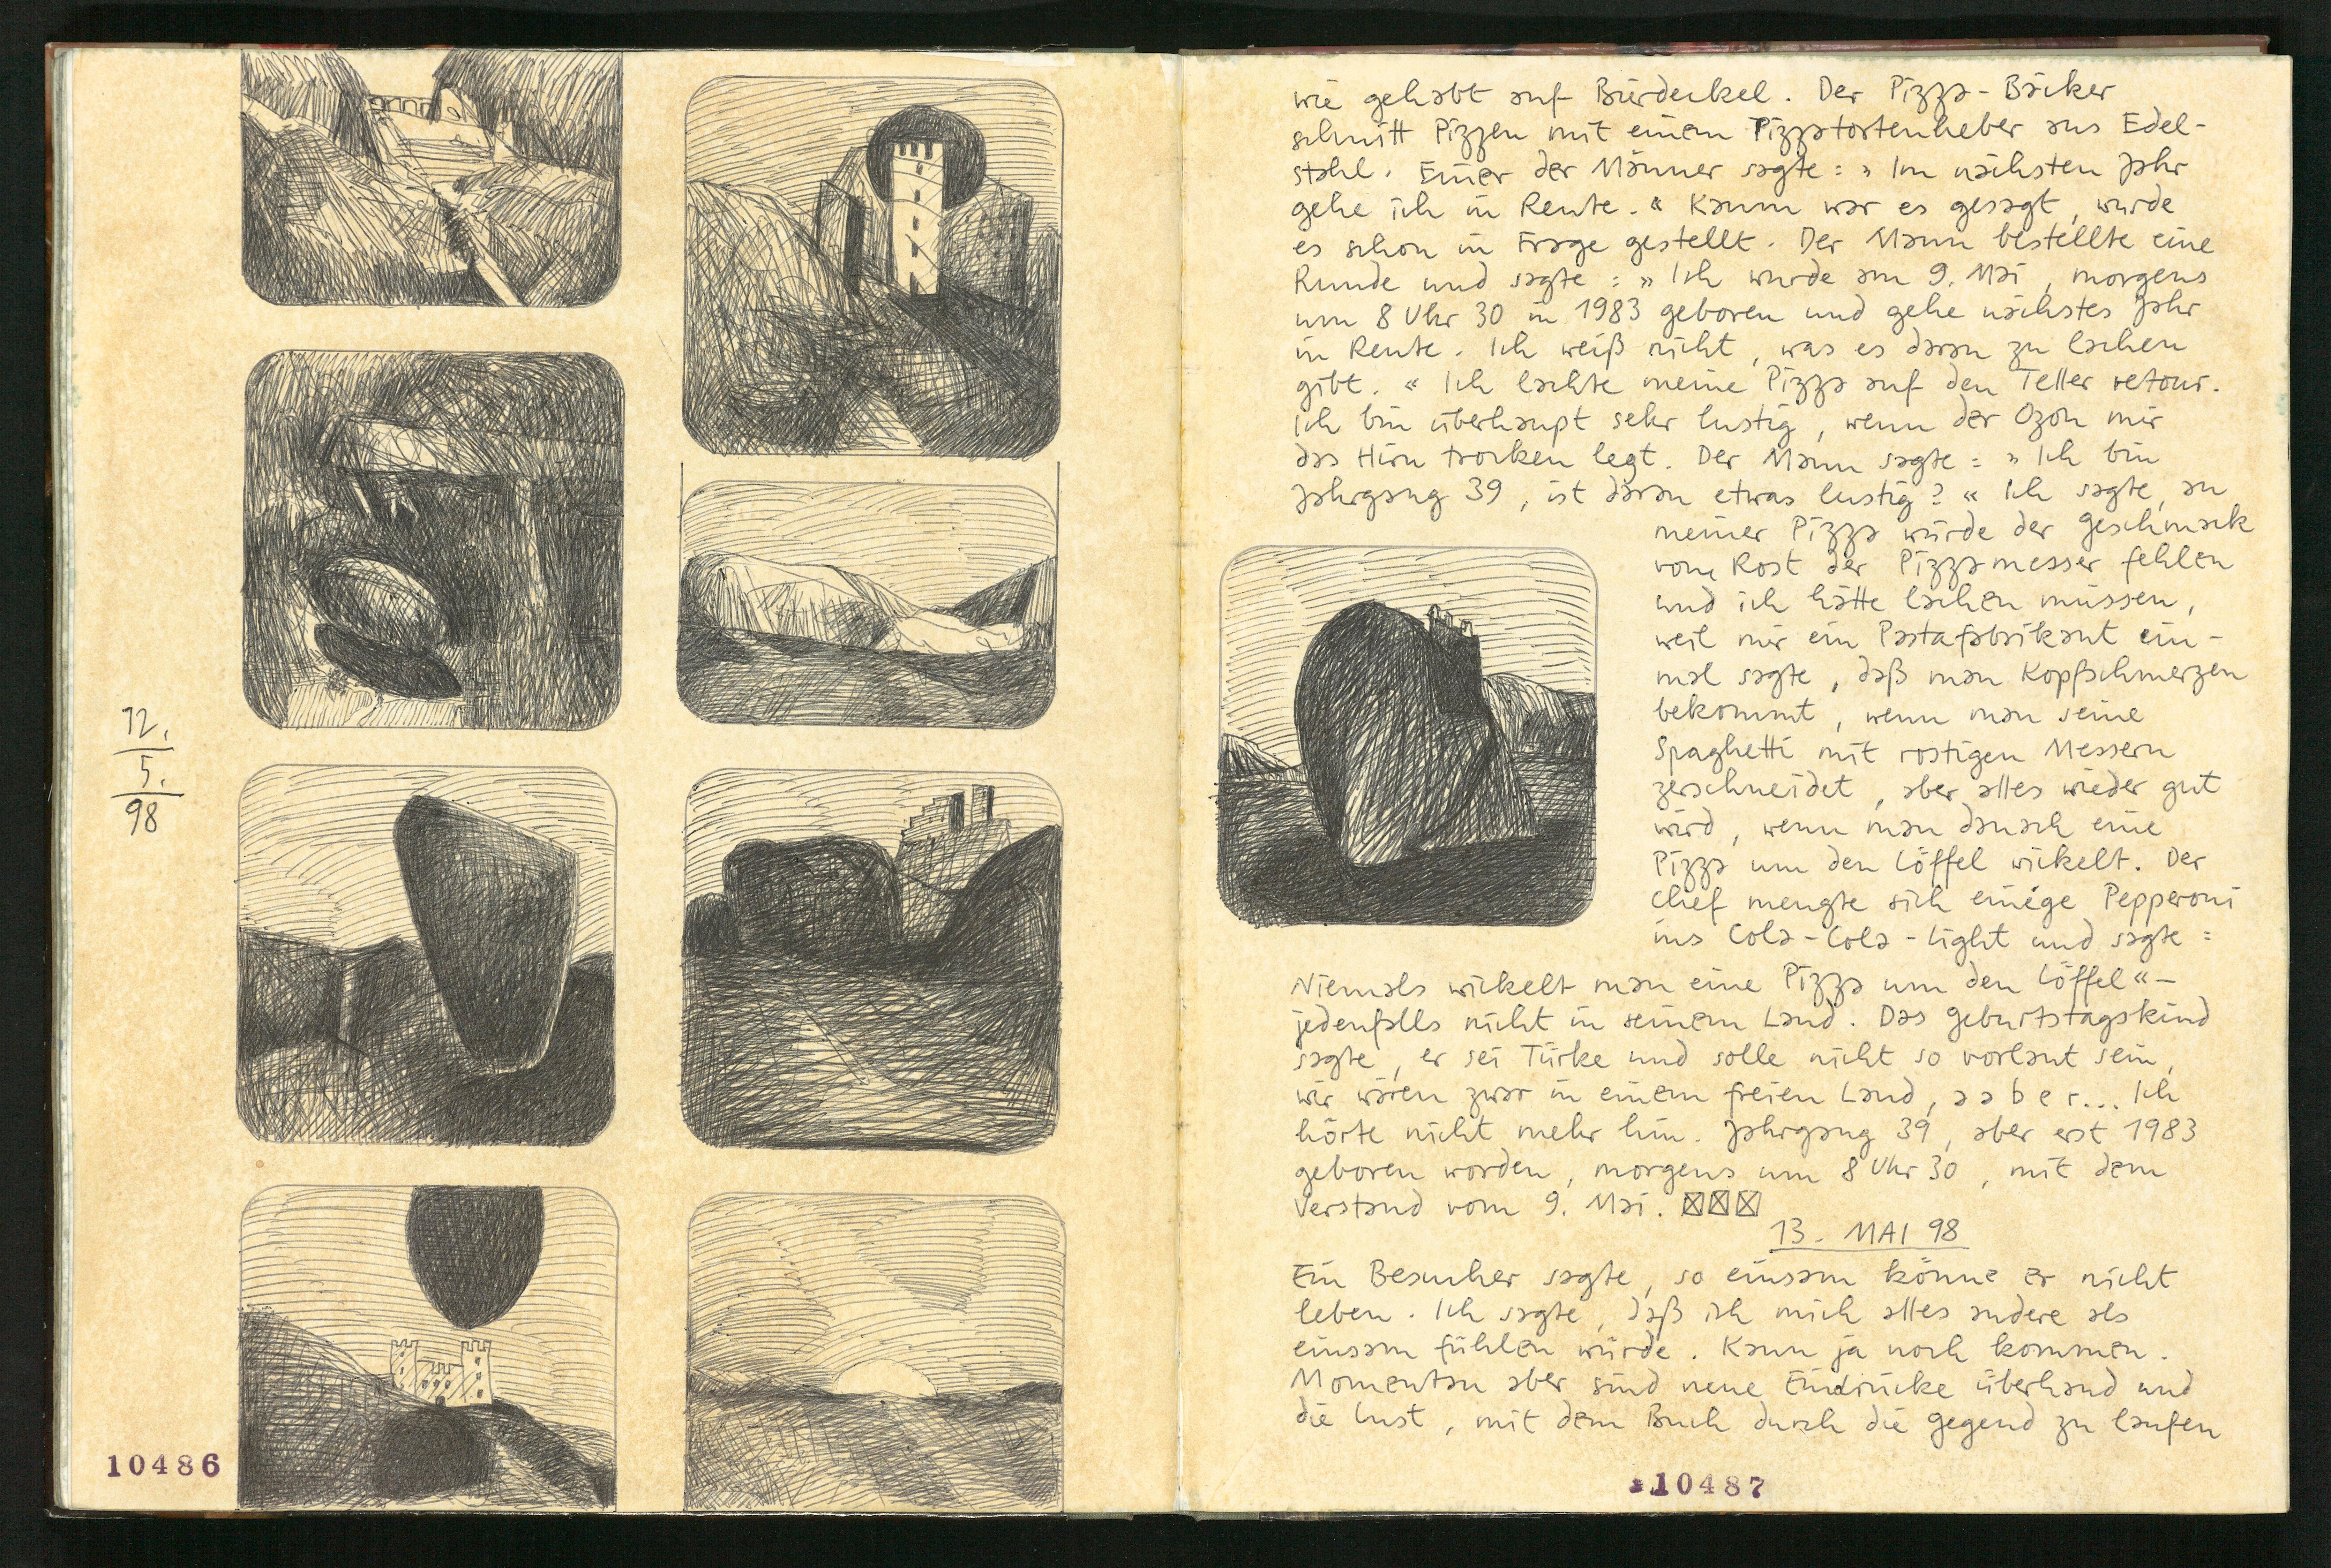 12.
5.
98
10486
wie gehabt auf Bürdeckel. Der Pizza-Bäcker
schnitt Pizzen mit einem Pizzatortenheber aus Edel-
stahl. Einer der Männer sagte: » Im nächsten Jahr
gehe ich in Rente. « Kaum war es gesagt, wurde
es schon in Frage gestellt. Der Mann bestellte eine
Runde und sagte: » Ich wurde am 9. Mai, morgens
um 8 Uhr 30 in 1983 geboren und gehe nächstes Jahr
in Rente. Ich weiß nicht, was es daran zu lachen
gibt. « Ich lachte meine Pizza auf den Teller retour.
Ich bin überhaupt sehr lustig, wenn der Ozon mir
das Hirn trocken legt. Der Mann sagte: » Ich bin
Jahrgang 39, ist daran etwas lustig? « Ich sagte, an
meiner Pizza würde der Geschmack
vom Rost der Pizzamesser fehlen
und ich hätte lachen müssen,
weil mir ein Pastafabrikant ein-
mal sagte, daß man Kopfschmerzen
bekommt, wenn man seine
Spaghetti mit rostigen Messern
zerschneidet, aber alles wieder gut
wird, wenn man danach eine
Pizza um den Löffel wickelt. Der
Chef mengte sich einige Pepperoni
ins Cola-Cola-Light und sagte:
Niemals wickelt man eine Pizza um den Löffel« –
jedenfalls nicht in seinem Land. Das Geburtstagskind
sagte, er sei Türke und solle nicht so vorlaut sein,
wir wären zwar in einem freien Land, a a b e r... Ich
hörte nicht mehr hin. Jahrgang 39, aber erst 1983
geboren worden, morgens um 8 Uhr 30, mit dem
Verstand vom 9. Mai. ☒☒☒
13. MAI 98
Ein Besucher sagte, so einsam könne er nicht
leben. Ich sagte, daß ich mich alles andere als
einsam fühlen würde. Kann ja noch kommen.
Momentan aber sind neue Eindrücke überhand und
die Lust, mit dem Buch durch die Gegend zu laufen
10487